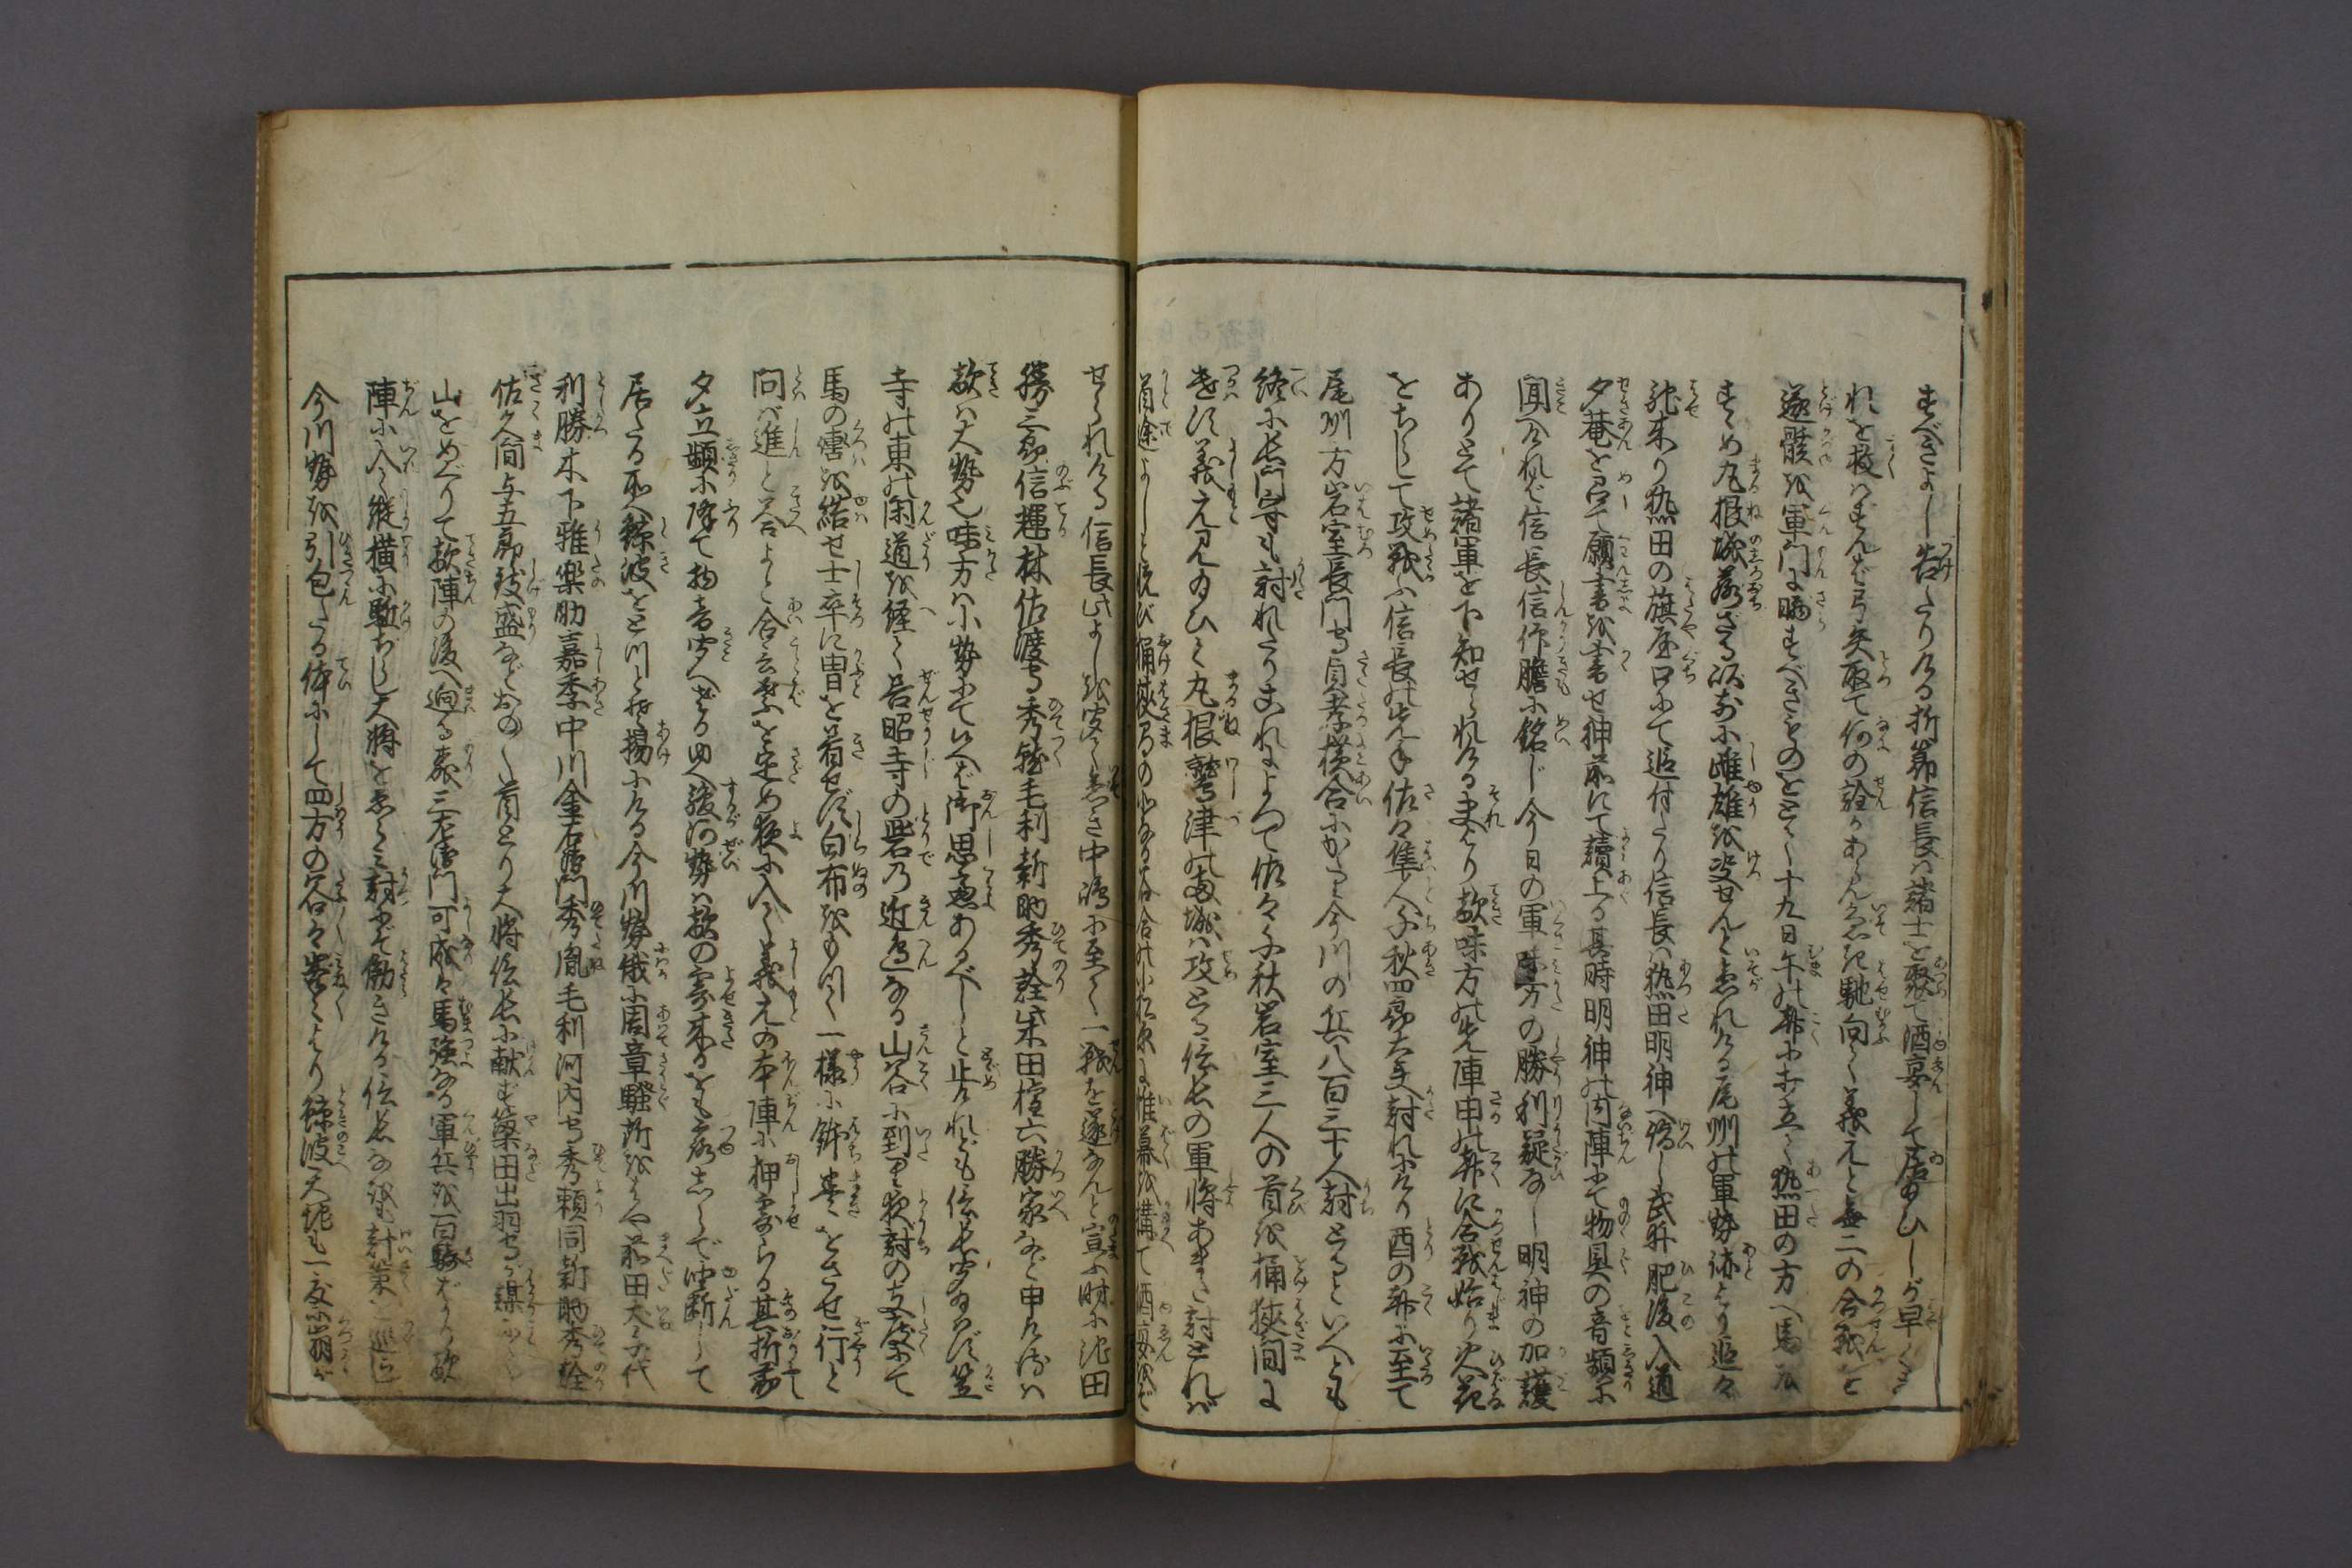 すべきよし告たりける折節信長ハ諸士を聚て酒宴して居給ひしが早く是
れを救ハずんバ弓矢取て何の詮かあらん急ぎ馳向て義元と無二の合戦を
遂骸を軍門に曝すべきものをとて十九日午の刻に打立て熱田の方へ馬を
すゝめ丸根の城落ざる以前に雌雄を決せんと急れける尾州の軍勢跡より追々
馳来り熱田の旗屋口にて追付たり信長ハ熱田明神へ詣し武井肥後入道
夕菴を召て願書を書せ神前にて讀上る其時明神の内陣にて物具の音頻に
聞へけれバ信長信仰膽に銘じ今日の軍味方の勝利疑なし明神の加護
ありとて諸軍を下知せられける夫より敵味方の先陣申の刻に合戦始り火花
をちらして攻戦ふ信長の先手佐々隼人千秋四郎大夫討れにけり酉の刻に至て
尾州方岩室長門守貞孝横合にかゝり今川の兵八百三十人討とるといへとも
終に長門守も討れたりこれによつて佐々千秋岩室三人の首を桶狭間に
遣す義元見給ひて丸根鷲津の両城ハ攻とる信長の軍将あまた討とれバ
首途よしと悦び桶狭間の北なる谷合の小松原に帷幕を構て酒宴を
せられける信長此よしを聞て急ぎ中嶋に至て一戦を遂なんと宣ふ時に池田
勝三郎信輝林佐渡守秀貞毛利新助秀詮柴田権六勝家など申けるハ
敵ハ大勢也味方ハ小勢にて候へバ御思慮あるべしと止れども信長聞給ハず笠
寺の東の閑道を経て善昭寺の砦乃近邊なる山谷に到り夜討の支度にて
馬の轡を結せ士卒に冑を着せず白布をもつて一様に鉢巻をさせ行と
問バ進と答よと合言葉を定め夜に入て義元の本陣に押寄らる其折節
夕立頻に降て物音聞へざる由へ駿河勢ハ敵の寄来るをも露しらで油断して
居たる所へ鯨波をどつと揚にける今川勢俄に周章騒所をはや前田犬千代
利勝木下雅楽助嘉季中川金右衛門秀胤毛利河内守秀頼同新助秀詮
佐久間与五郎致盛などおの〳〵首をとり大将信長に献ず簗田出羽守が謀にて
山をめぐりて敵陣の後へ廻る森三左衛門可成ハ馬強なる軍兵を百騎ばかり敵
陣に入て縦横に駈ちらし大将を急に討んぞ働きける信長なを計策を巡らし
今川勢を引包たる体にして四方の谷々峯々より鯨波天地も一度に崩が